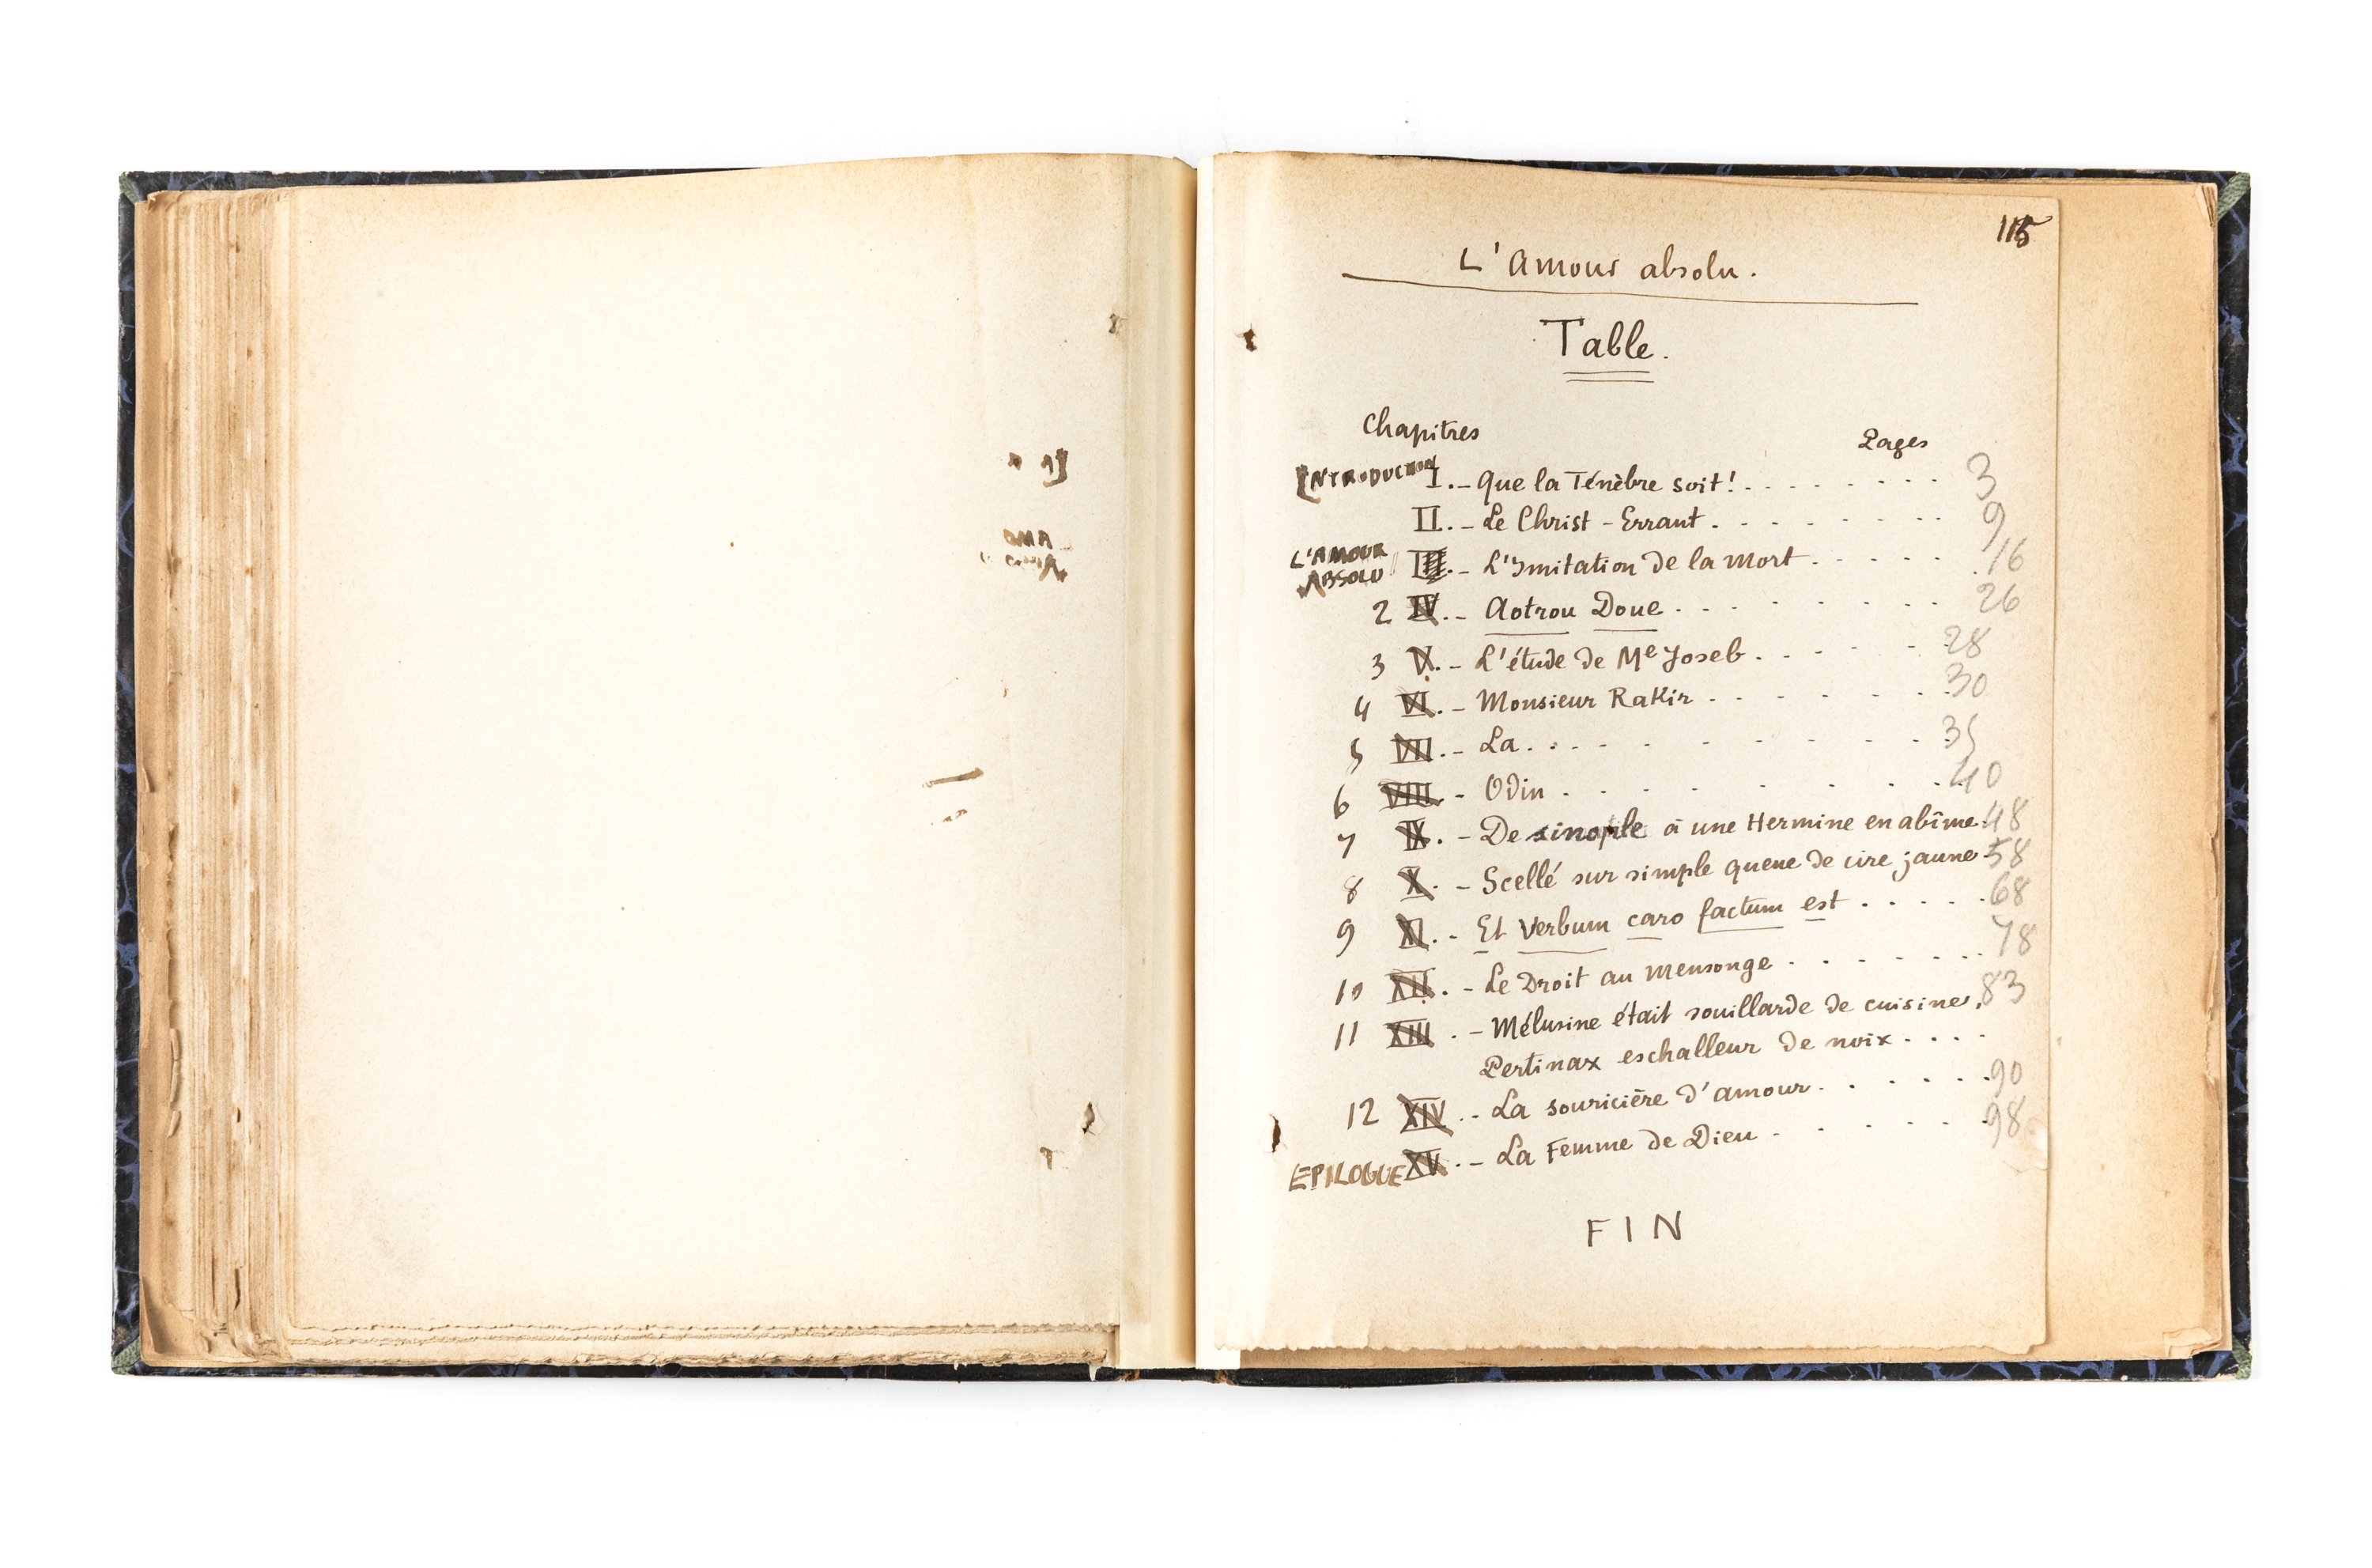 115
L'Amour absolu.
Table.
Chapitres
Pages
INTRODUCTION I. - Que la Ténèbre soit! . . . . . . . . 3
II. - Le Christ-Errant . . . . . . . . 9
L'AMOUR ABSOLU III. - L'Imitation de la Mort . . . . . 16
2 IV. - Aotrou Doue . . . . . . . . 26
3 V. - L'étude de Me Joseb . . . . . . 28
4 VI. - Monsieur RaKir . . . . . . . 30
5 VII. - La . . . . . . . . . . 35
6 VIII. - Odin . . . . . . . . . 40
7 IX. - De sinople à une Hermine en abîme. 48
8 X. - Scellé sur simple queue de cire jaune. 58
9 XI. - Et Verbum caro factum est . . . . . 68
10 XII. - Le Droit au Mensonge . . . . . . . 78
11 XIII. - Mélusine était souillarde de cuisine, 83
Pertinax eschalleur de noix . . . .
12 XIV. - La souricière d'amour . . . . . . 90
EPILOGUE XV. - La Femme de Dieu . . . . . . 98
FIN